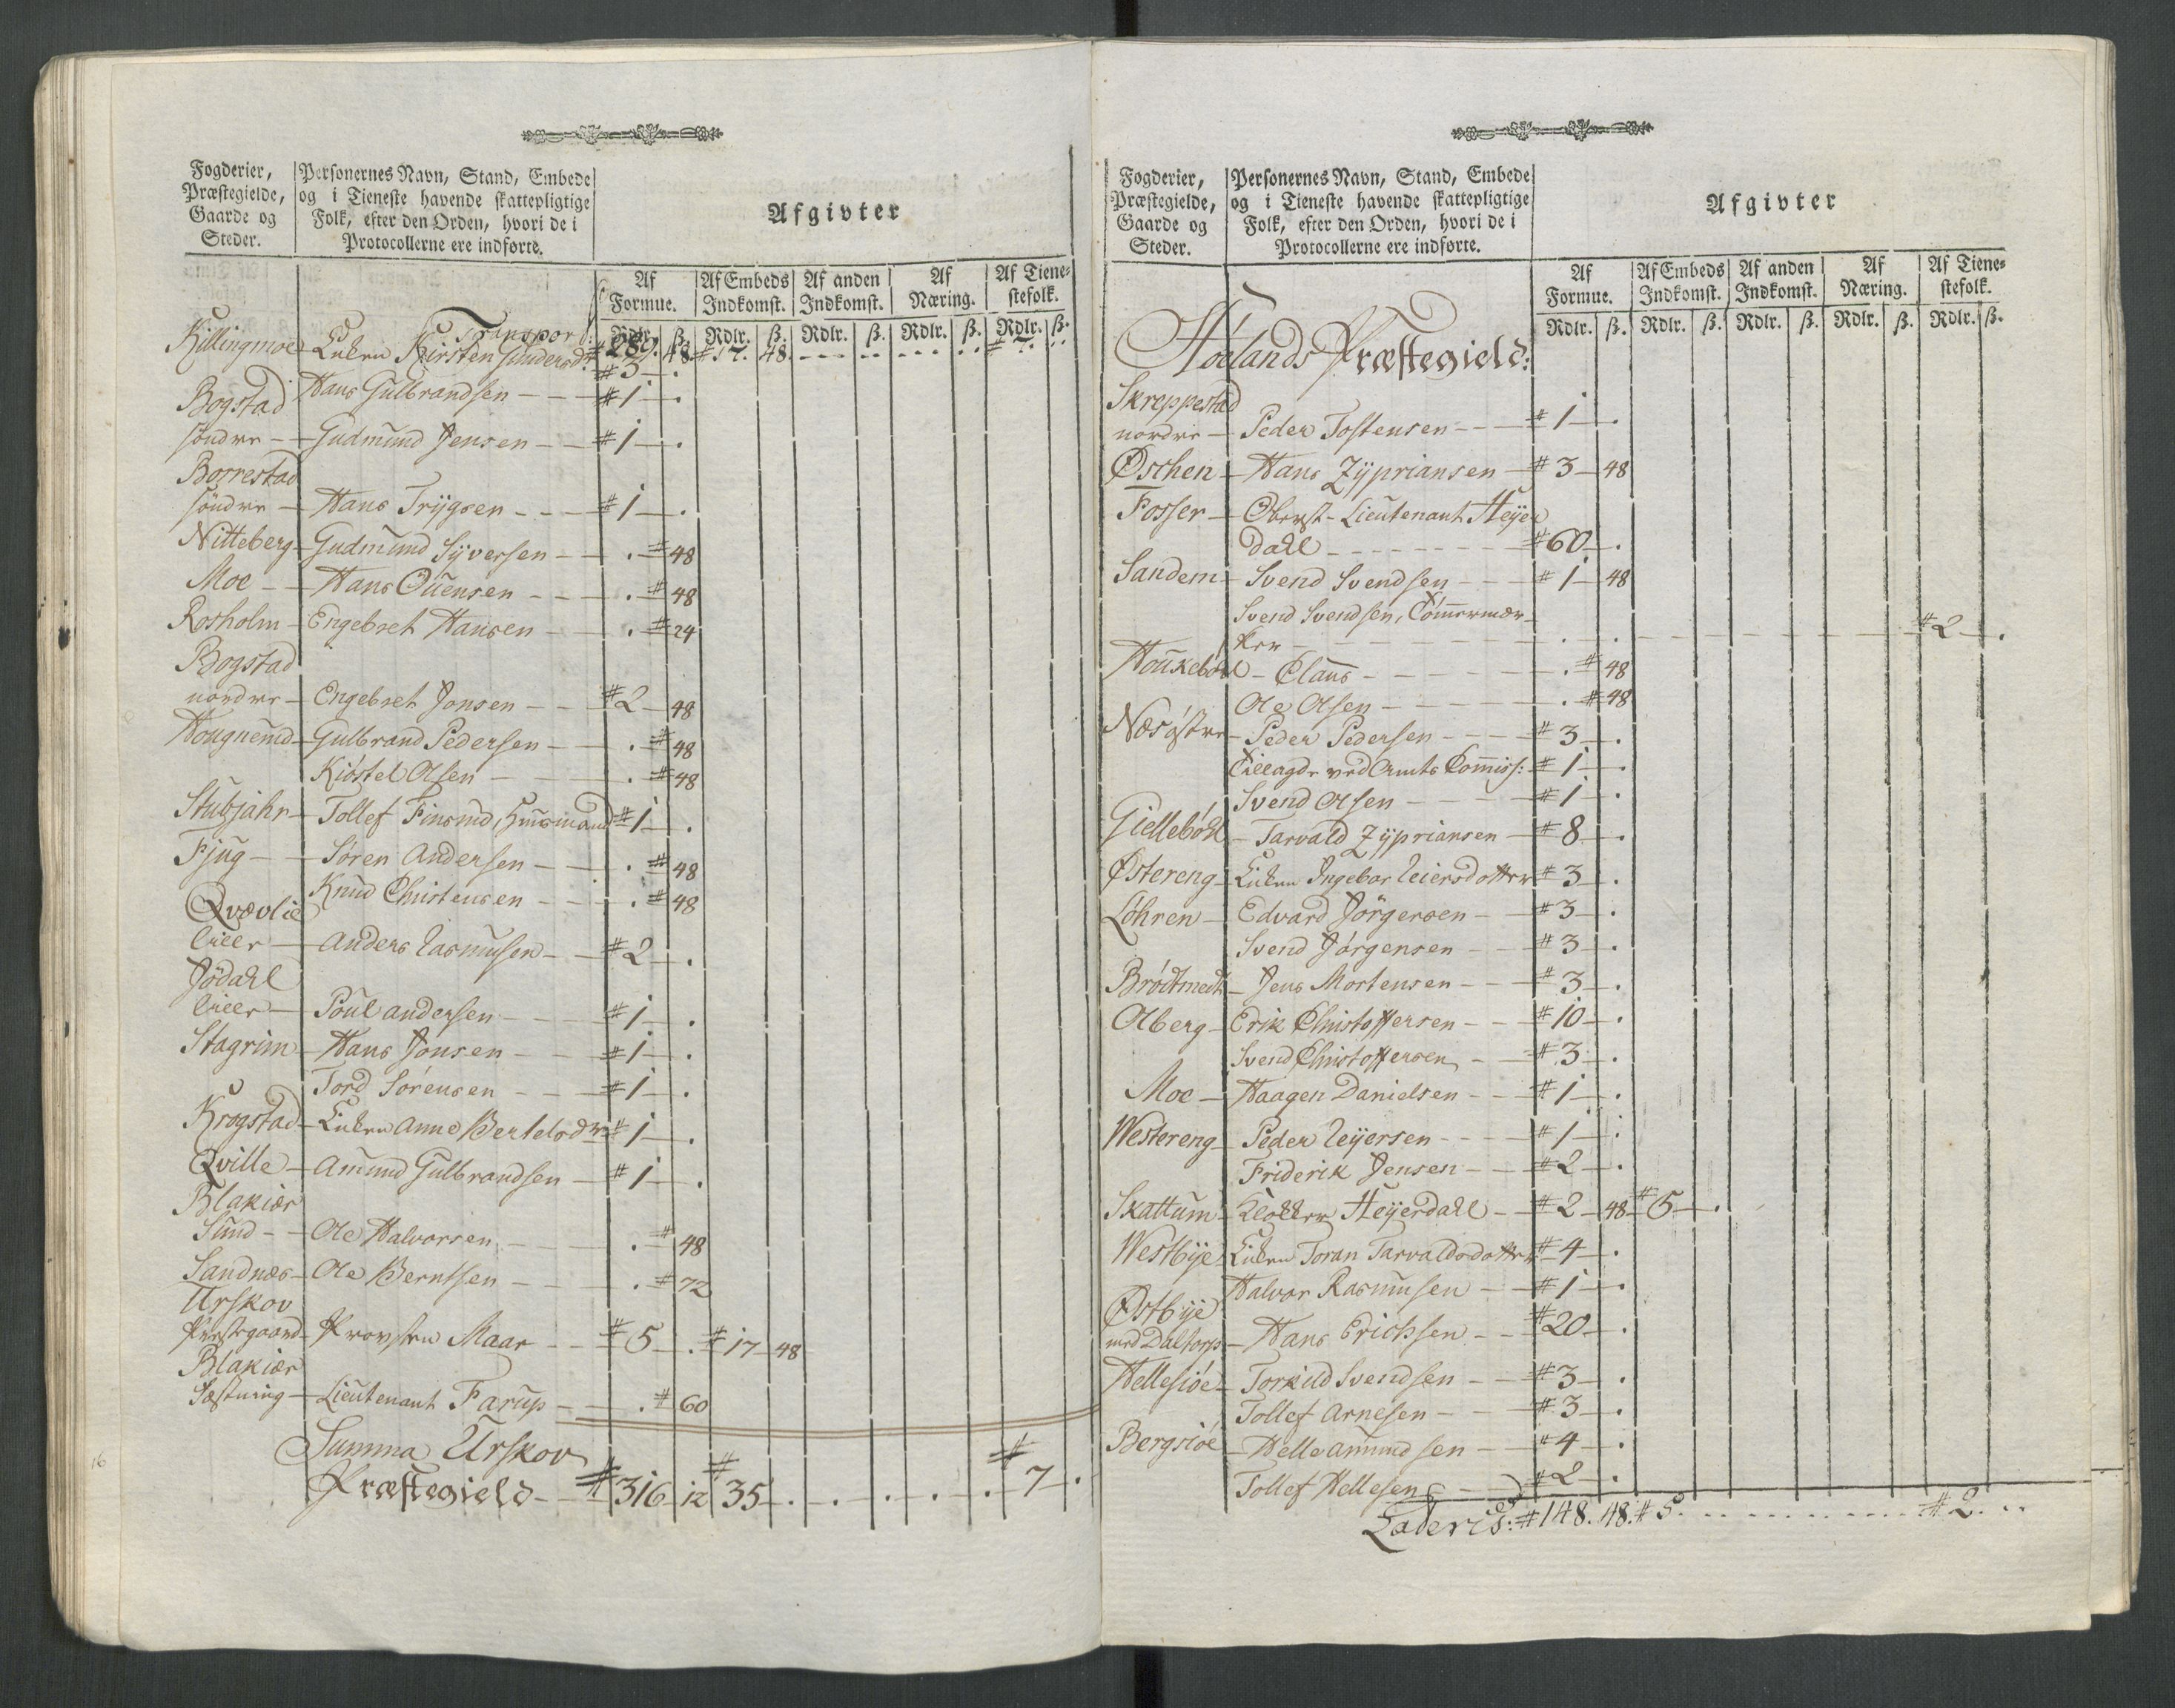 Fogderier, Præstegielde, Gaarde og Steder.
Personernes Navn, Stand, Embede og i Tieneste havende skattepligtige Folk, efter den Orden, hvori de i Protocollerne ere indførte.
Afgivter
Af Formue. Af Embeds Indkomst. Af anden Indkomst. Af Næring. Af Tienestefolk.
Rdlr. ß. Rdlr. ß. Rdlr. ß. Rdlr. ß. Rdlr. ß.
Transport 48. # 17. 48. # 7.
Killingmoe Enken Kirsten # 3 .
Bogstad Hans Gulbrandsen # 1 .
söndre Gudmund Jensen # 1 .
Borrestad
söndre Hans Trygsen # 1 .
Nitteberg Gudmund Syversen . # 48
Moe Hans Ouensen . # 48
Rosholm Engebret Hansen . # 24
Bogstad
nordre Engebret Jonsen # 2 48
Hougnemd Gulbrand Pedersen . # 48
Kiöstel Olsen . # 48
Tollef Finsmd, Huusmand # 1 .
Fjug Sören Andersen . # 48
Knud Christensen . # 48
Qvævlie
liller Anders Rasmusen # 2 .
Jödahl
liller Poul andersen # 1 .
Stagrim Hans Jonsen # 1 .
Tord Sörensen # 1 .
Krogstad Enken Anne Bertelsdtr # 1 .
Qville Amund Gulbrandsen # 1 .
Blakiær
Sund Ole Halvorsen . # 48
Sandnæs Ole Berntsen . # 72
Urskov
Præstegaard Provsten Maar # 5 . # 17 48
Blakiær
Fæstning Lieutenant Farup . # 60
Summa Urskov
Præstegield # 316 12 # 35 . . . . . # 7 .
Fogderier, Præstegielde, Gaarde og Steder.
Personernes Navn, Stand, Embede og i Tieneste havende skattepligtige Folk, efter den Orden, hvori de i Protocollerne ere indførte.
Afgivter
Af Formue. Af Embeds Indkomst. Af anden Indkomst. Af Næring. Af Tienestefolk.
Rdlr. ß. Rdlr. ß. Rdlr. ß. Rdlr. ß. Rdlr. ß.
Höelands Præstegield:
Skreppestad
nordre Peder Tostensen # 1 .
Öschen Hans Zypriansen # 3 48
Fosser Oberst-Lieutenant Heyer
dahl # 60 .
Sandem Svend Svendsen # 1 48
Svend Svendsen, Tömmermær
ker . . # 2 .
Houkeböl Claus . # 48
Ole Olsen . # 48
Næs östre Peder Pedersen # 3 .
Tillagde ved Amts Commiss: # 1 .
Svend Olsen # 1 .
Giellebøhl Tarvald Zypriansen # 8 .
Östereng Enken Ingebor Reiersdotter # 3 .
Löhren Edvard Jörgersen # 3 .
Svend Jörgensen # 3 .
Brödtmedt Jens Mortensen # 3 .
Olberg Erik Christoffersen # 10 .
Svend Christoffersen # 3 .
Moe Haagen Danielsen # 1 .
Westereng Peder Reyersen # 1 .
Friderik Jensen # 2 .
Skattum Klokker Heyerdahl # 2 48 # 5 .
Westbye Enken Toran Tarvaldsdotter # 4 .
Halvor Rasmusen # 1 .
Östbye
med Daltorp Hans Erichsen # 20 .
Hellesiöe Torkild Svendsen # 3 .
Tollef Arnesen # 3 .
Bergsiöe Helle Amundsen # 4 .
Tollef Hellesen # 2 .
Lateris: # 148. 48. # 5. # 2.
16